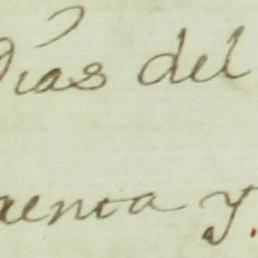 Días del
uenta y